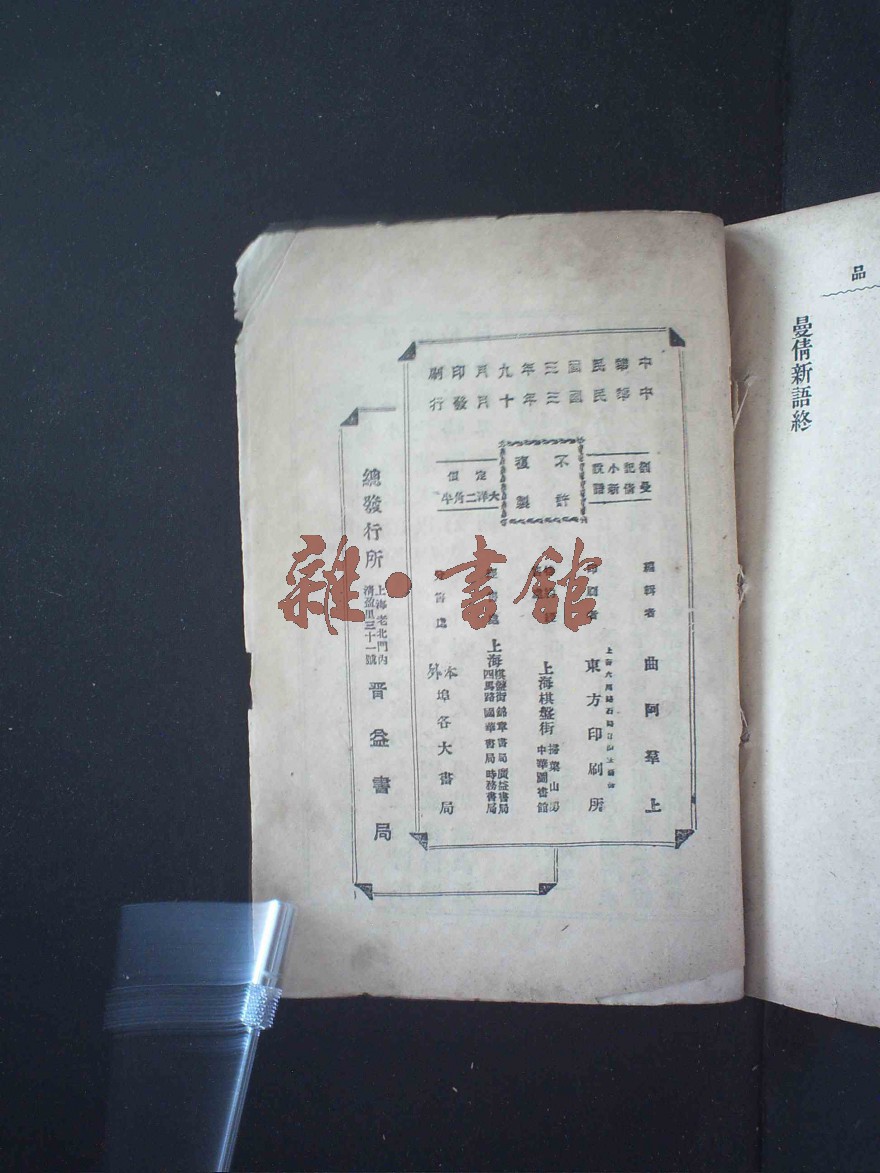 品
曼倩新語終
中華民國三年九月印刷
中華民國三年十月發行
劄記小說
曼倩新語
不許
複製
定價
大洋二角半
編輯者
曲阿羣上
印刷者
東方印刷所
上海棋盤街
掃葉山房
中華圖書館
上海
棋盤街錦章書局廣益書局
四馬路國華書局時務書局
本外埠各大書局
總發行所
上海老北門內
清盈里三十一號
晋益書局
雜·書館